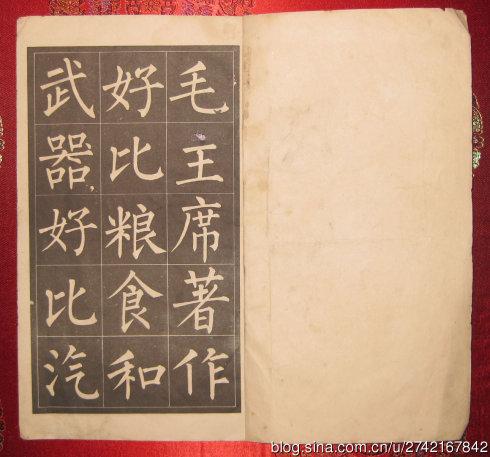 毛主席著作
好比粮食和
武器，好比汽
blog.sina.com.cn/u/2742167842